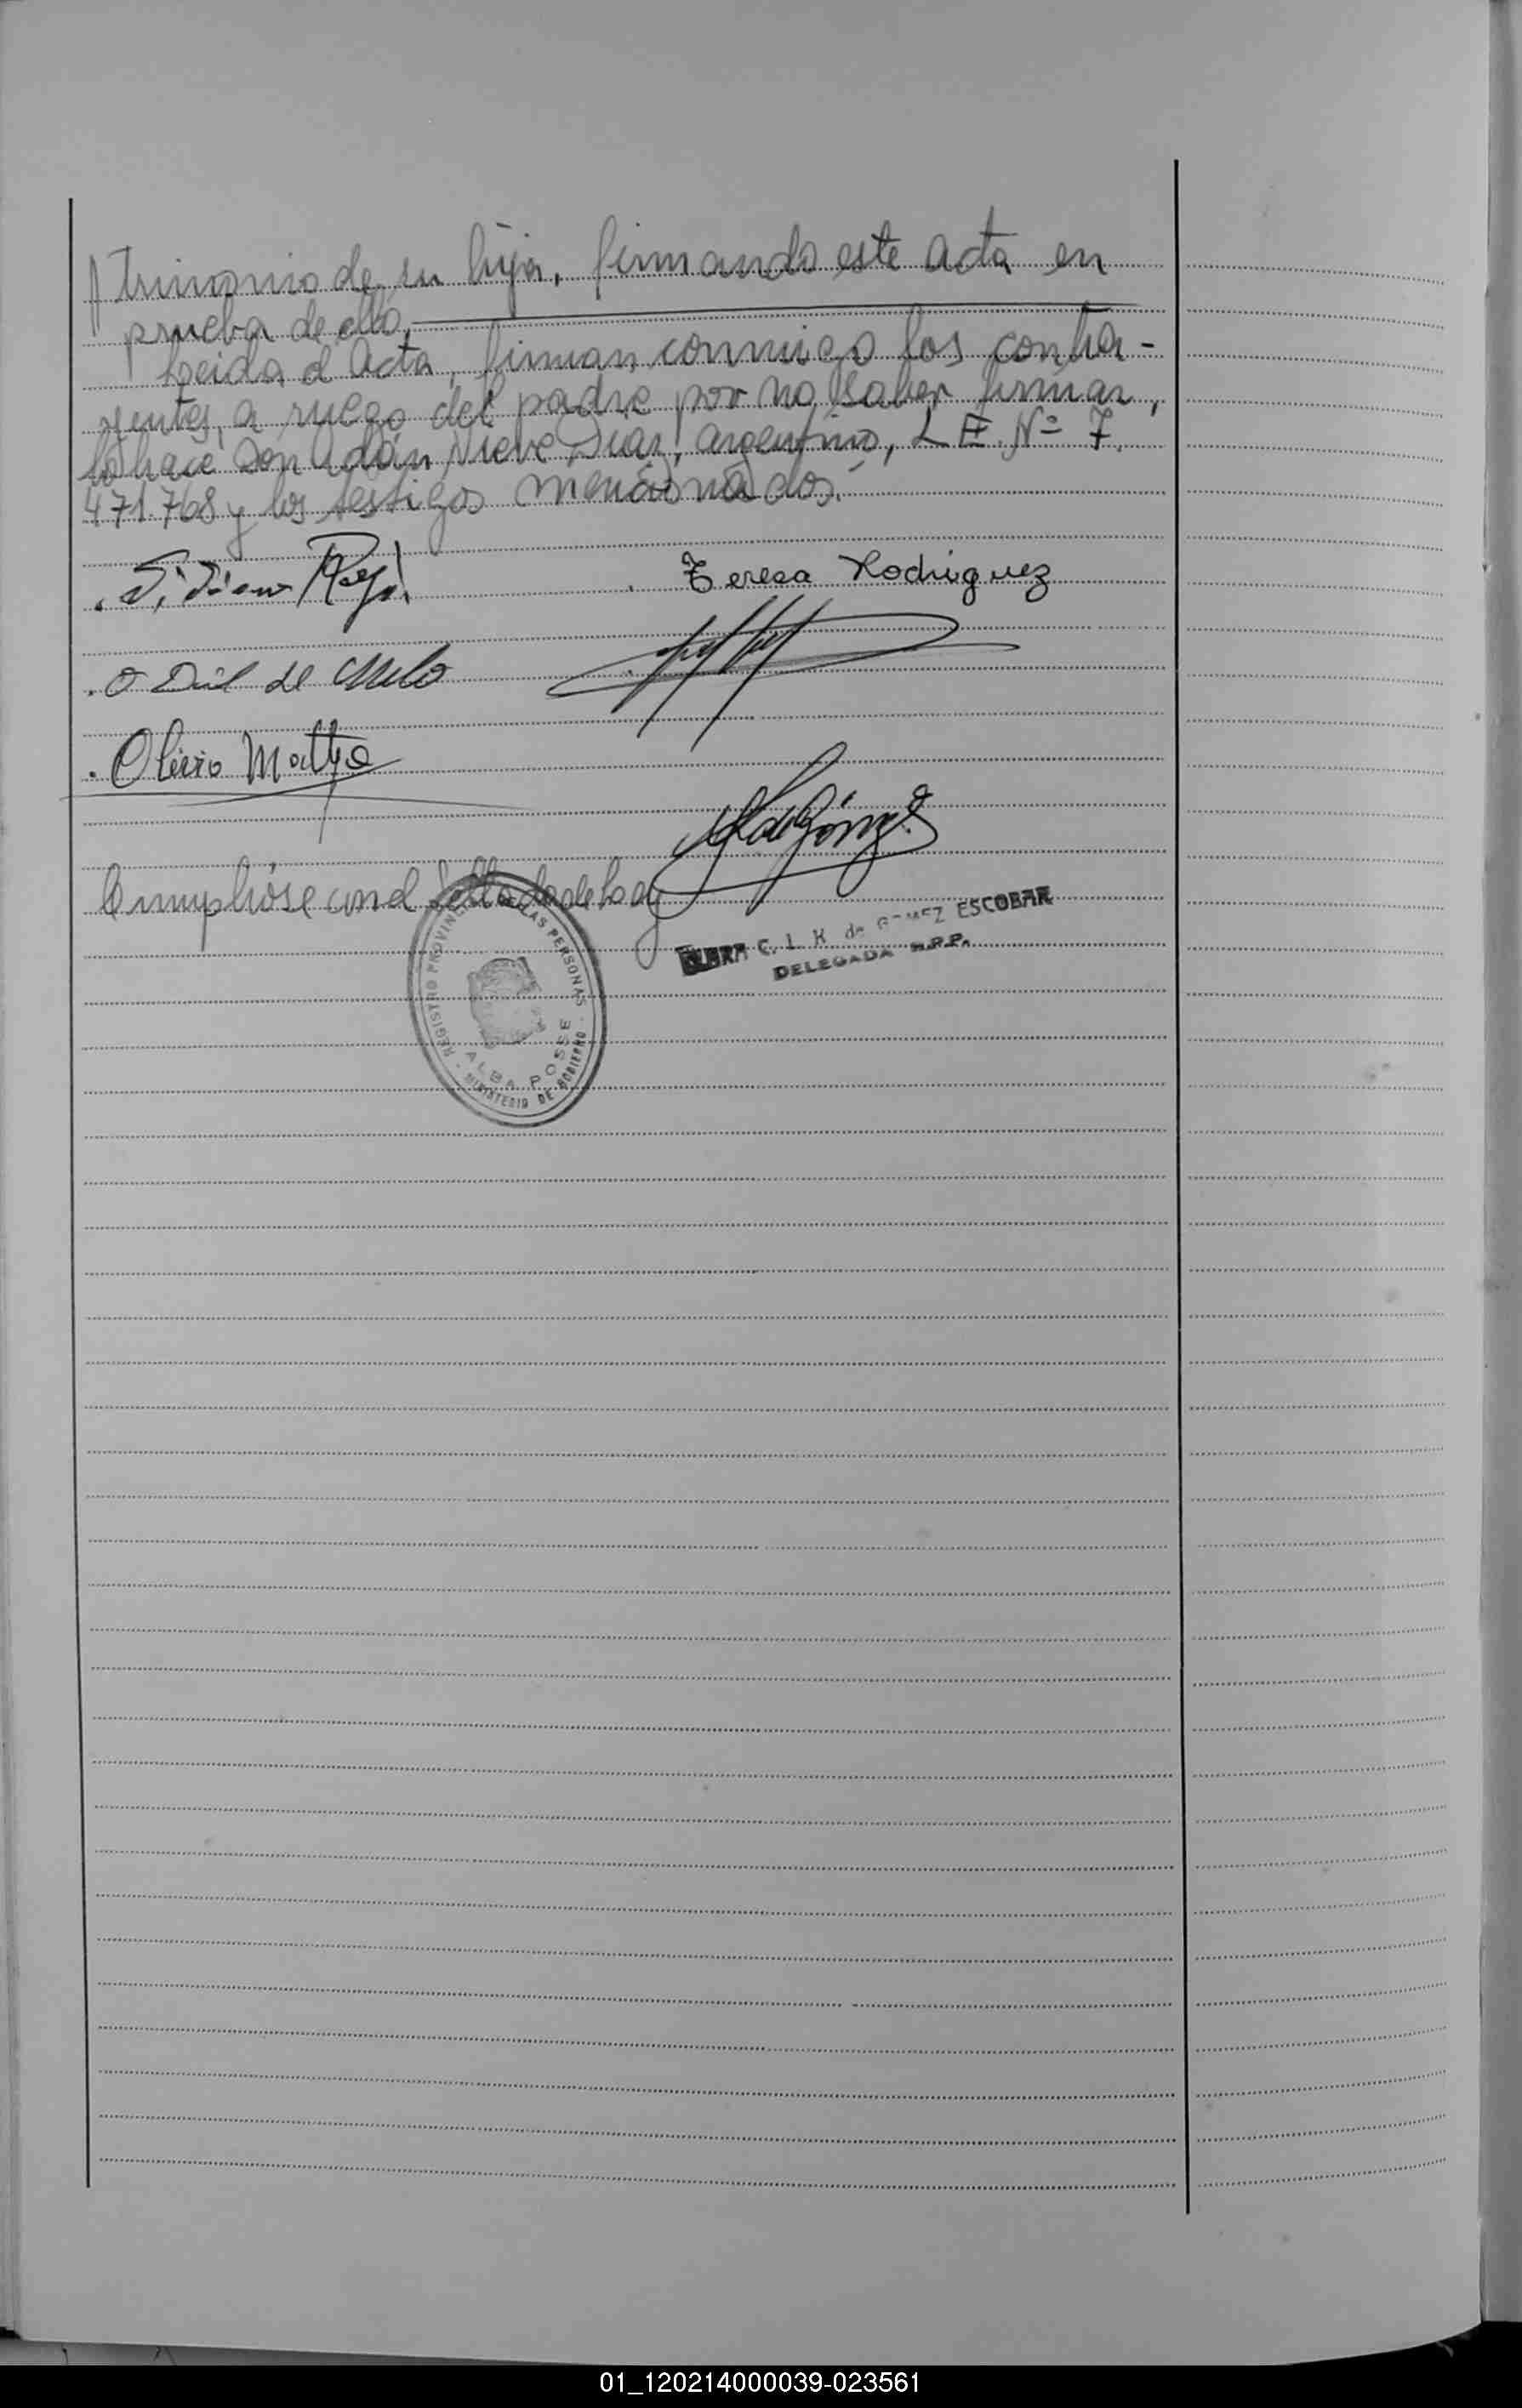 trimonio de su hija, firmando este acta en
prueba de ello.
Leida el Acta, firman conmigo los contra-
yentes, a ruego del padre por no saber firmar,
lo hace Don Adán Nieve Diaz, argentino, L E. Nº 7.
471.768 y los testigos mencionados.
Teresa Rodriguez
O Dil de Melo
Olirio Mattje
Cumplióse con el Sellado de Ley
ELBRA C. I. K de GOMEZ ESCOBAR
DELEGADA R.P.P.
REGISTRO PROVINCIAL DE LAS PERSONAS
ALBA POSSE
MINISTERIO DE GOBIERNO
01_120214000039-023561